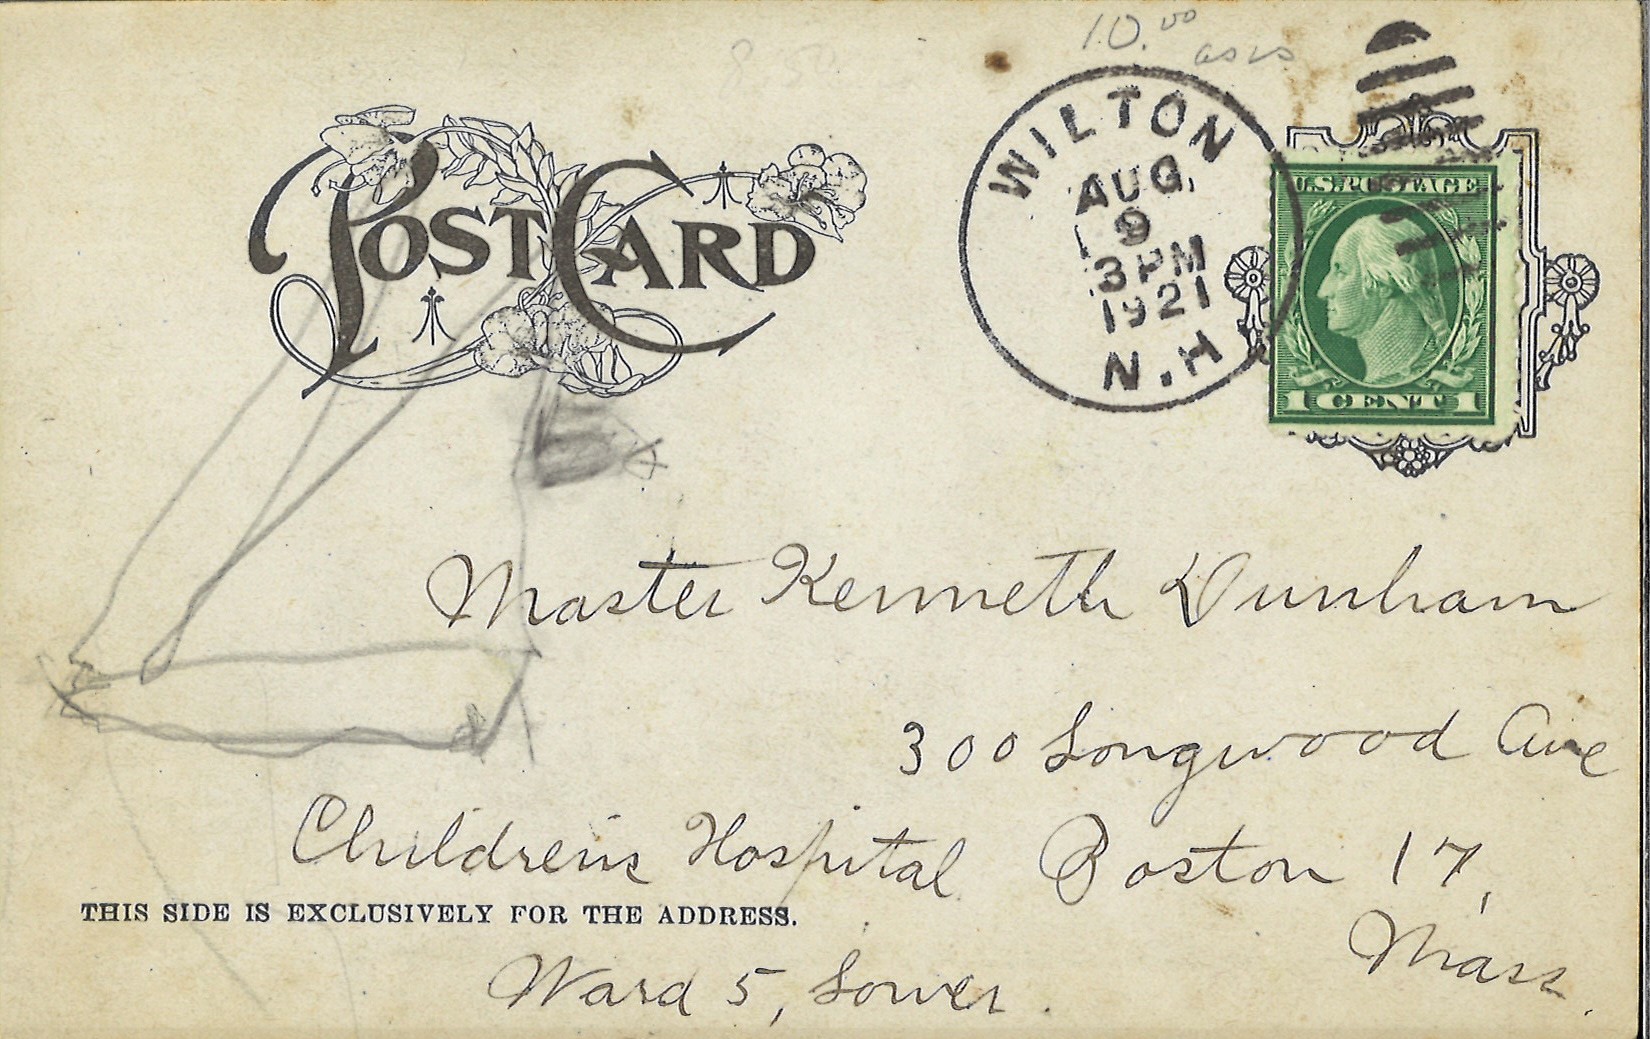 10.00
as is
POST CARD
WILTON
AUG.
9
3 PM
1921
N.H.
U.S. POSTAGE
1 CENT 1
Master Kenneth Dunham
300 Longwood Ave
Children's Hospital Boston 17,
Mass.
THIS SIDE IS EXCLUSIVELY FOR THE ADDRESS.
Ward 5, Lower.